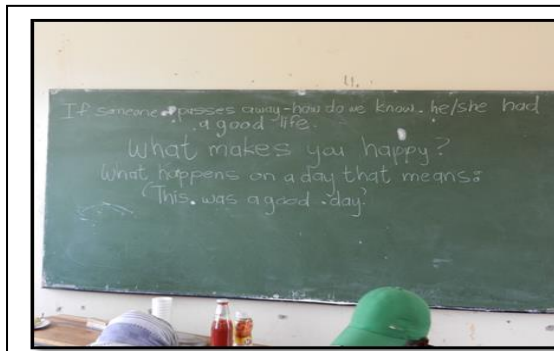 If someone passes away - how do we know. he/she had
a good life.
What makes you happy?
What happens on a day that means:
'This was a good day'